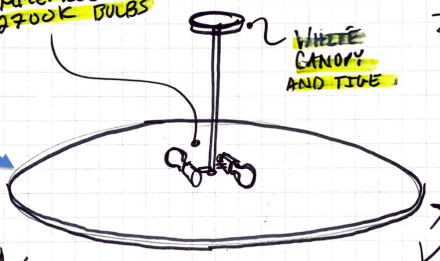 2700K BULBS
WHITE
CANOPY
AND TIGE